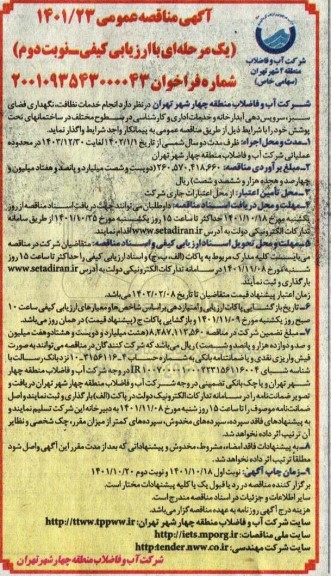 آگهی مناقصه عمومی ۱۴۰۱/۲۳
(یک مرحله‌ای با ارزیابی کیفی ـ نوبت دوم)
شماره فراخوان ۲۰۰۱۰۹۳۵۴۳۰۰۰۰۴۳
شرکت آب و فاضلاب
منطقه ۴ شهر تهران
(سهامی خاص)
شرکت آب و فاضلاب منطقه چهار شهر تهران در نظر دارد انجام خدمات نظافت، نگهداری فضای
سبز، سرویس‌دهی آبدارخانه و خدمات اداری و کارشناسی در سطوح مختلف در ساختمانهای تحت
پوشش خود را با شرایط ذیل از طریق مناقصه عمومی به پیمانکار واجد شرایط واگذار نماید.
۱ـ مدت و محل اجراء: ظرف مدت دو سال شمسی از تاریخ ۱۴۰۲/۱/۱ لغایت ۱۴۰۳/۱۲/۳۰ در محدوده
عملیاتی شرکت آب و فاضلاب منطقه چهار شهر تهران
۲ـ مبلغ برآوردی مناقصه: ۲۶۰,۵۷۰,۴۱۸,۶۶۰ (دویست و شصت میلیارد و پانصد و هفتاد میلیون و
چهارصد و هجده هزار و ششصد و شصت) ریال
۳ـ محل تأمین اعتبار: از محل اعتبارات جاری شرکت
۴ـ مهلت و محل دریافت اسناد مناقصه: داوطلبان می‌توانند جهت دریافت اسناد مناقصه از روز
یکشنبه مورخ ۱۴۰۱/۱۰/۱۸ حداکثر تا ساعت ۱۵ روز یکشنبه مورخ ۱۴۰۱/۱۰/۲۵ از طریق سامانه
تدارکات الکترونیکی دولت به آدرس www.setadiran.ir اقدام نمایند.
۵ـ مهلت و محل تحویل اسناد ارزیابی کیفی و اسناد مناقصه: متقاضیان شرکت در مناقصه
می‌بایست کلیه مدارک مربوط به پاکات (الف، ب، ج) و اسناد ارزیابی کیفی را حداکثر تا ساعت ۱۵ روز
شنبه مورخ ۱۴۰۱/۱۱/۰۸ در سامانه تدارکات الکترونیکی دولت به آدرس www.setadiran.ir
بارگذاری و ثبت نمایند.
زمان اعتبار پیشنهاد قیمت متقاضیان تا تاریخ ۱۴۰۲/۰۲/۰۸ می‌باشد.
۶ـ تاریخ بازگشایی پاکات ارزیابی و امتیازدهی براساس شاخص‌ها و معیارهای ارزیابی کیفی ساعت ۱۰
صبح روز یکشنبه مورخ ۱۴۰۱/۱۱/۰۹ و بازگشایی پاکات ج (پیشنهاد قیمت) در همان روز می‌باشد.
۷ـ مبلغ تضمین شرکت در مناقصه ۸,۲۸۷,۱۱۲,۵۶۰ (هشت میلیارد و دویست و هشتاد و هفت میلیون
و صد و دوازده هزار و پانصد و شصت) ریال می‌باشد که شرکت کنندگان در مناقصه می‌توانند به صورت
فیش واریزی نقدی و یا ضمانتنامه بانکی به شماره حساب
در وجه شرکت آب و فاضلاب منطقه چهار
شهر تهران و یا چک بانکی تضمینی در وجه شرکت آب و فاضلاب منطقه چهار شهر تهران دریافت و
تصویر ضمانت‌نامه را در سامانه تدارکات الکترونیکی دولت در پاکت (الف) بارگذاری و ثبت نمایند و اصل
ضمانت‌نامه موصوف را تا ساعت ۱۵ روز شنبه مورخ ۱۴۰۱/۱۱/۰۸ به دبیرخانه این شرکت تسلیم نمایند و
به پیشنهادهای فاقد سپرده، سپرده‌های مخدوش، سپرده‌های کمتر از میزان مقرر، چک شخصی و نظایر
آن ترتیب اثر داده نخواهد شد.
۸ـ به پیشنهادات فاقد امضاء، مشروط، مخدوش و پیشنهاداتی که بعد از مدت مقرر این آگهی واصل شود
مطلقاً ترتیب اثر داده نخواهد شد.
۹ـ زمان چاپ آگهی: نوبت اول ۱۴۰۱/۱۰/۱۸ و نوبت دوم ۱۴۰۱/۱۰/۲۰
برگزار کننده مناقصه در رد یا قبول یک یا کلیه پیشنهادات مختار است.
سایر اطلاعات و جزئیات در اسناد مناقصه مندرج است.
هزینه درج آگهی روزنامه به عهده مناقصه گزار می‌باشد.
سایت شرکت آب و فاضلاب منطقه چهار شهر تهران: http://ttww.tppww.ir
سایت ملی مناقصات: http://iets.mporg.ir
سایت شرکت مهندسی: http:tender.nww.co.ir
شرکت آب و فاضلاب منطقه چهار شهر تهران